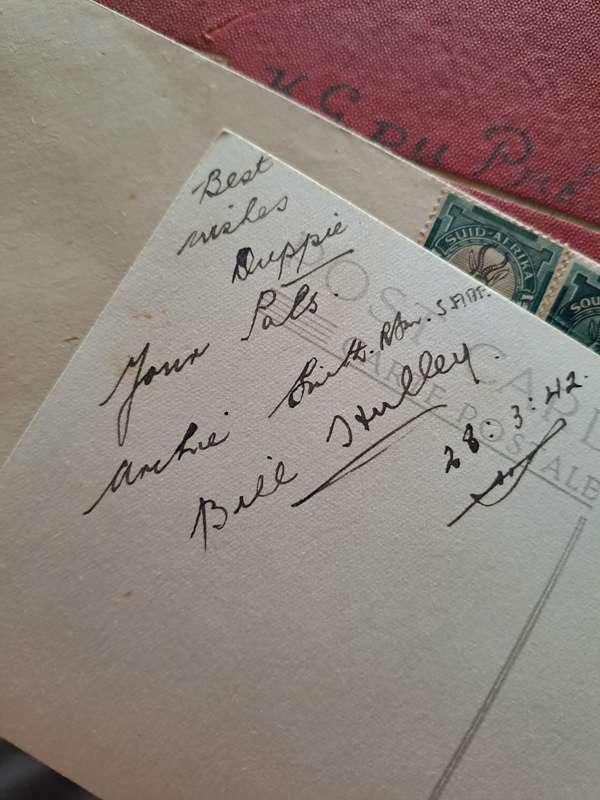 Best
wishes
Duppie
Your Pals.
Archie Smith. S.A.A.F.
Bill Hulley.
28:3:42.
POST CARD
CARTE POSTALE
SUID-AFRIKA
SOU
DU Pré